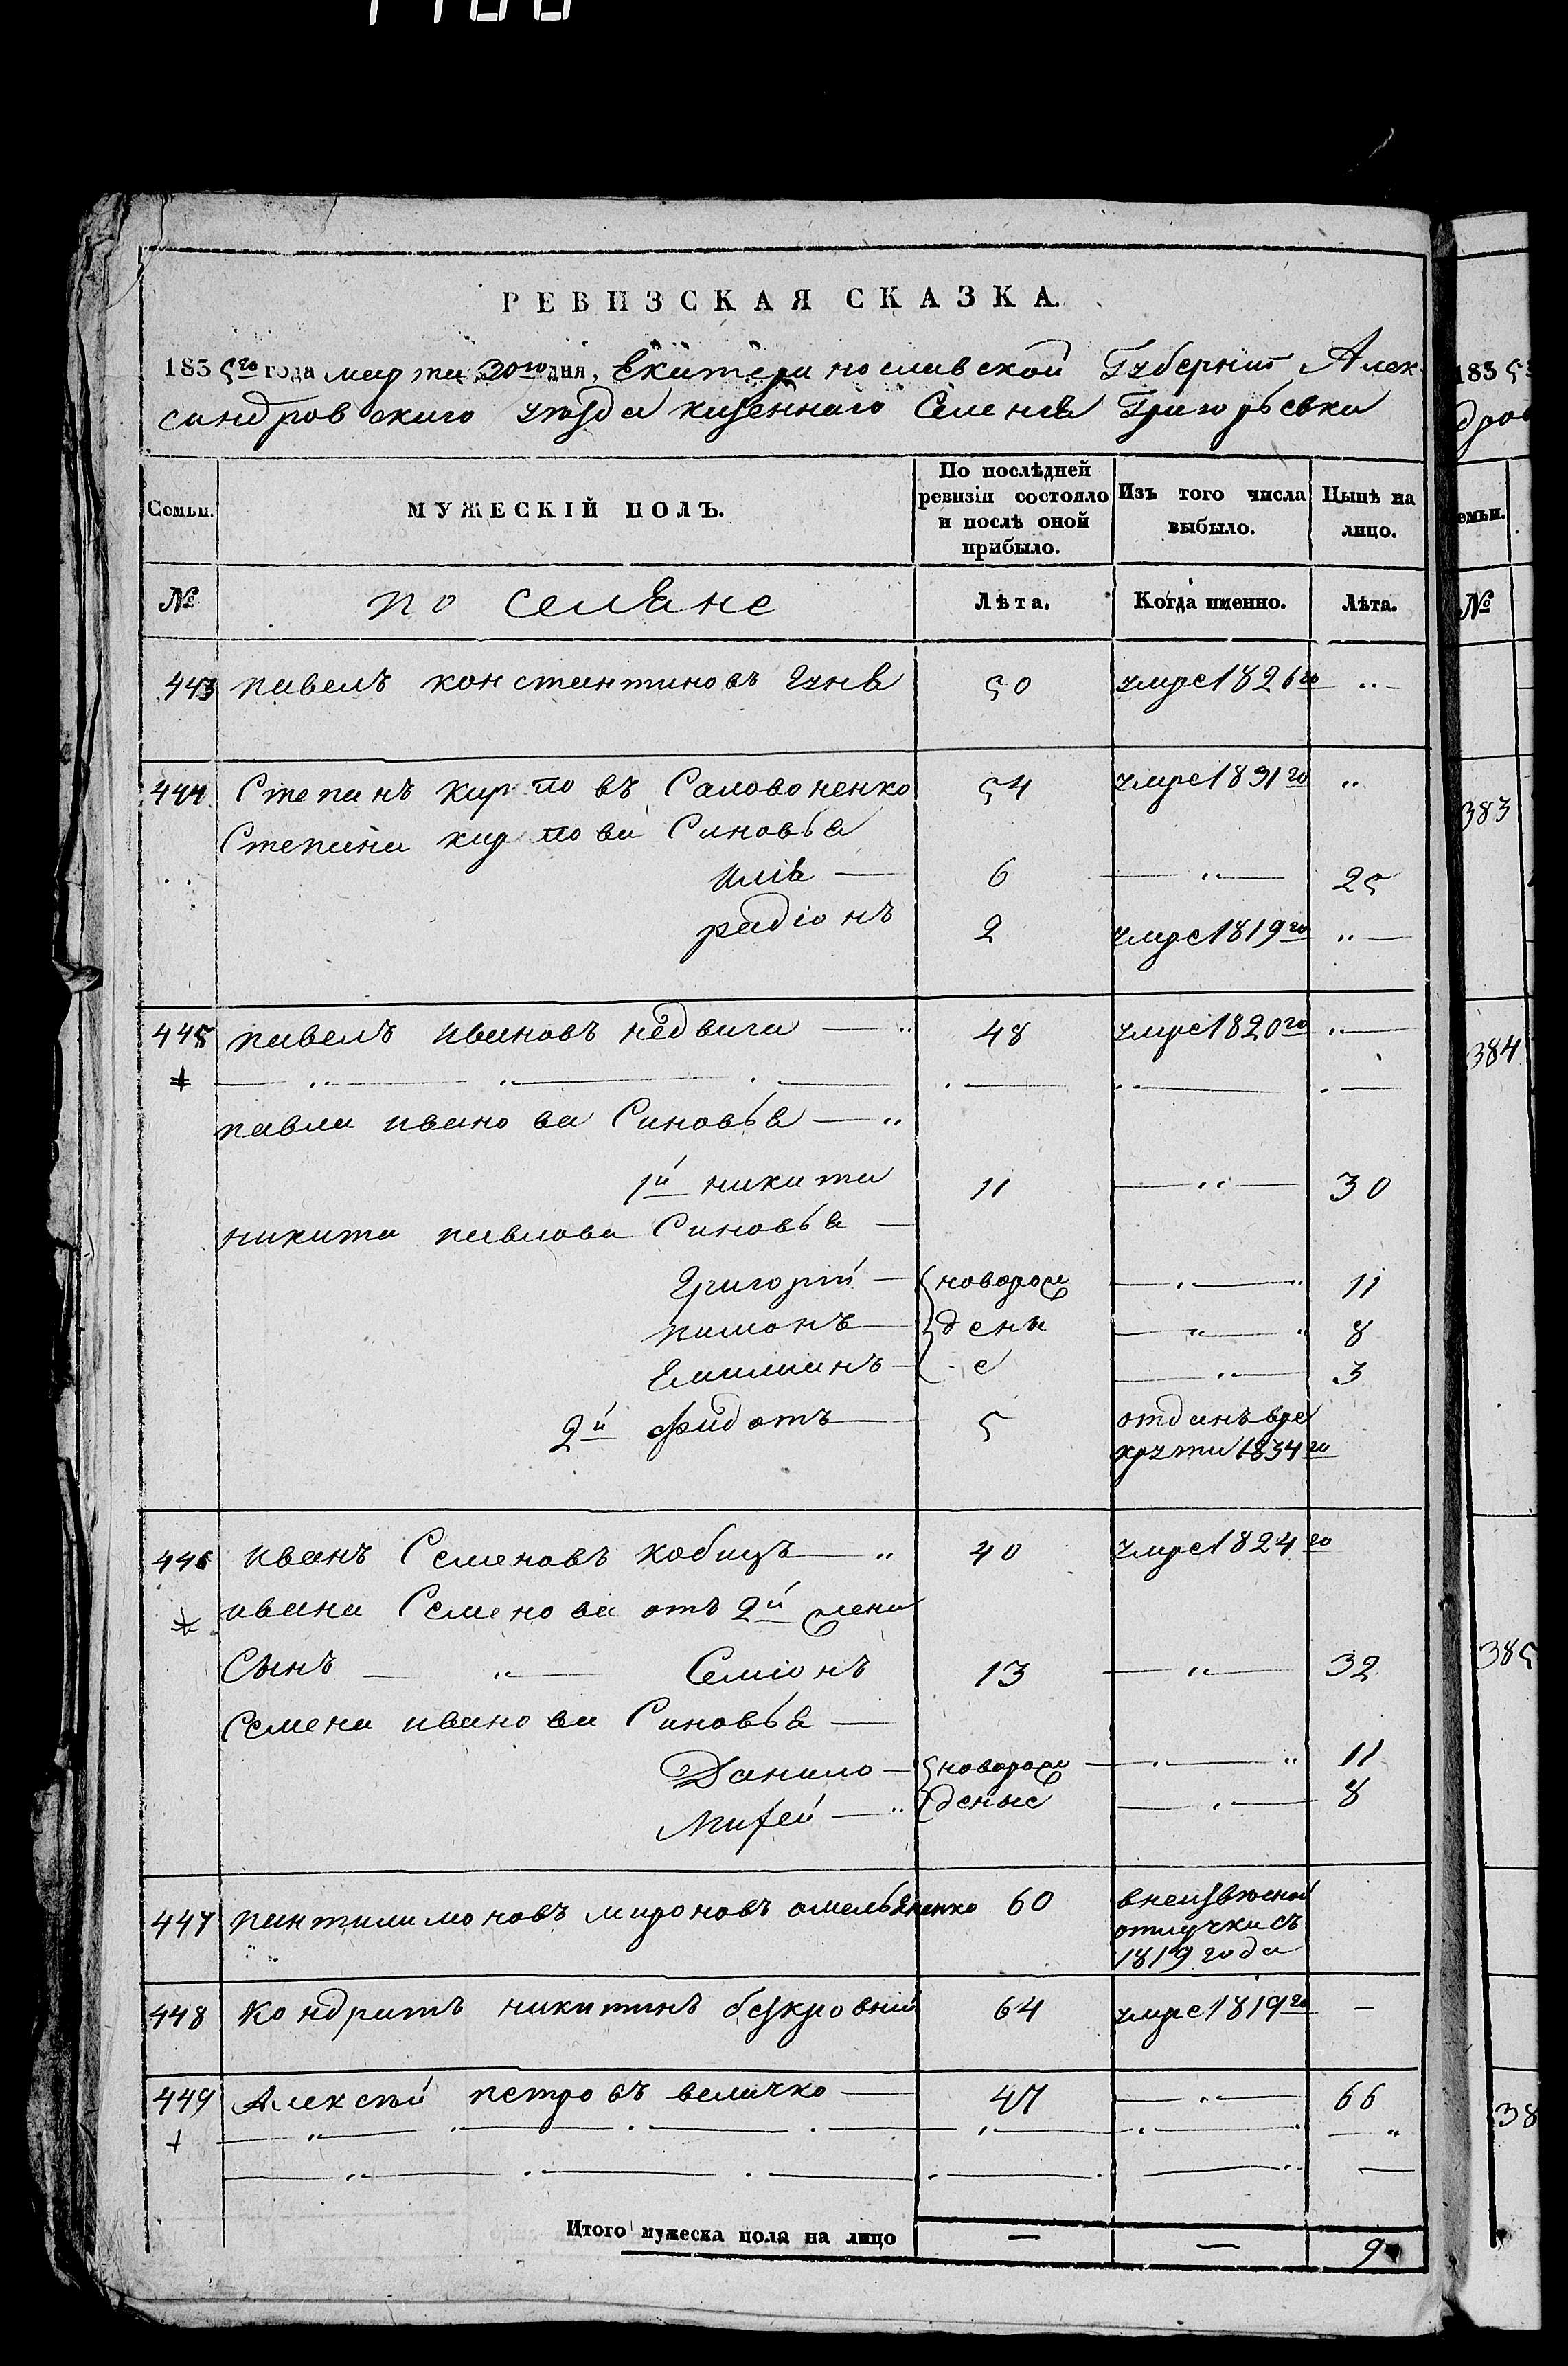 РЕВИЗСКАЯ СКАЗКА.
1835го года марта 20го дня, Екатеринославской Губернiи Алек-
сандровского уѣзда казенного Селенiя Григорьевки
Семьи. МУЖЕСКІЙ ПОЛЪ. По послѣдней ревизіи состояло и послѣ оной прибыло. Изъ того числа выбыло. Нынѣ на лицо.
№ поселяне Лѣта. Когда именно. Лѣта.
443 павелъ константиновъ 50 умре 1826го
444 Степанъ карповъ Саловоненко 54 умре 1831го
Степана карпова Синовья
илiя 6 25
радiонъ 2 умре 1819го
445 павелъ ивановъ недвига 48 умре 1820го
павла иванова Синовья
1й никита 11 30
никита павлова Синовья
Григорiй новорож 11
пимонъ дены 8
Емилианъ е 3
2й Фидотъ 5 отданъ вре
круты 1834го
446 иванъ Семеновъ кобищъ 40 умре 1824го
ивана Семенова отъ 2й жени
Сынъ Семiонъ 13 32
Семена иванова Синовья
Данило новорож 11
Мифей деные 8
447 пантилимоновъ мироновъ омельяненко 60 внеизвестной
отлучки съ
1819 года
448 Кондратъ никитинъ безкровнiй 64 умре 1819го
449 Алексѣй петровъ величко 47 66
Итого мужеска пола на лицо 9
1835
дров
емьи.
№
383
384
385
38